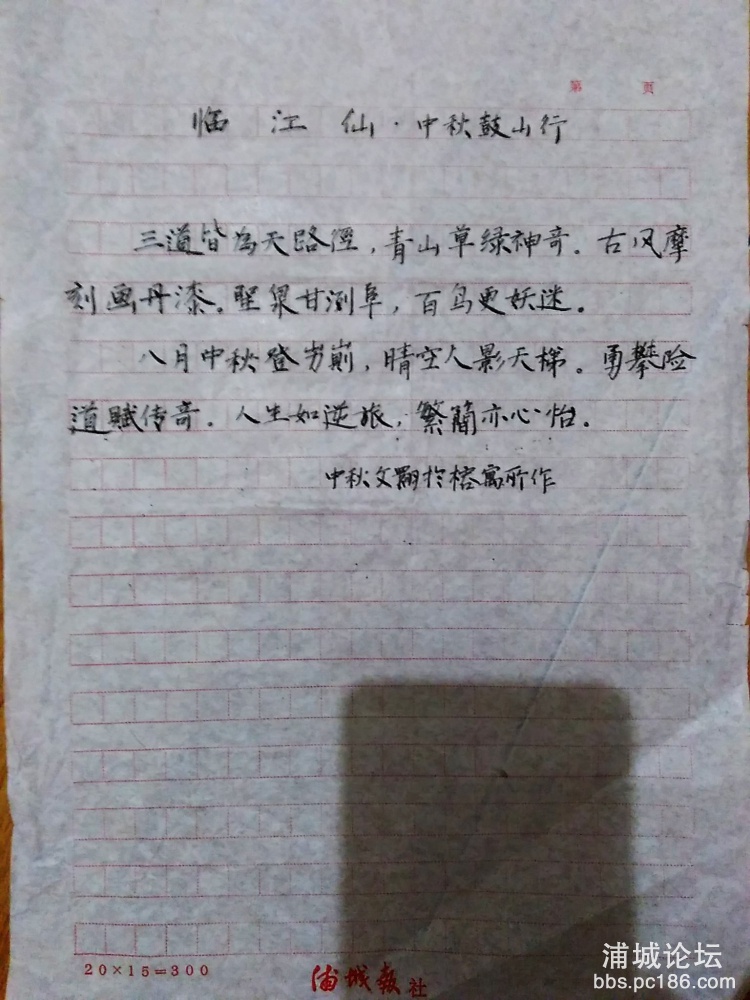 第 页
临江仙·中秋鼓山行
三道皆為天路徑，青山草绿神奇。古风摩
刻画丹漆。聖泉甘洌阜，百鸟更妖迷。
八月中秋登岃崱，晴空人影天梯。勇攀险
道赋传奇。人生如逆旅，繁簡亦心怡。
中秋文翾於榕寓所作
20×15=300
浦城报社
浦城论坛
bbs.pc186.com